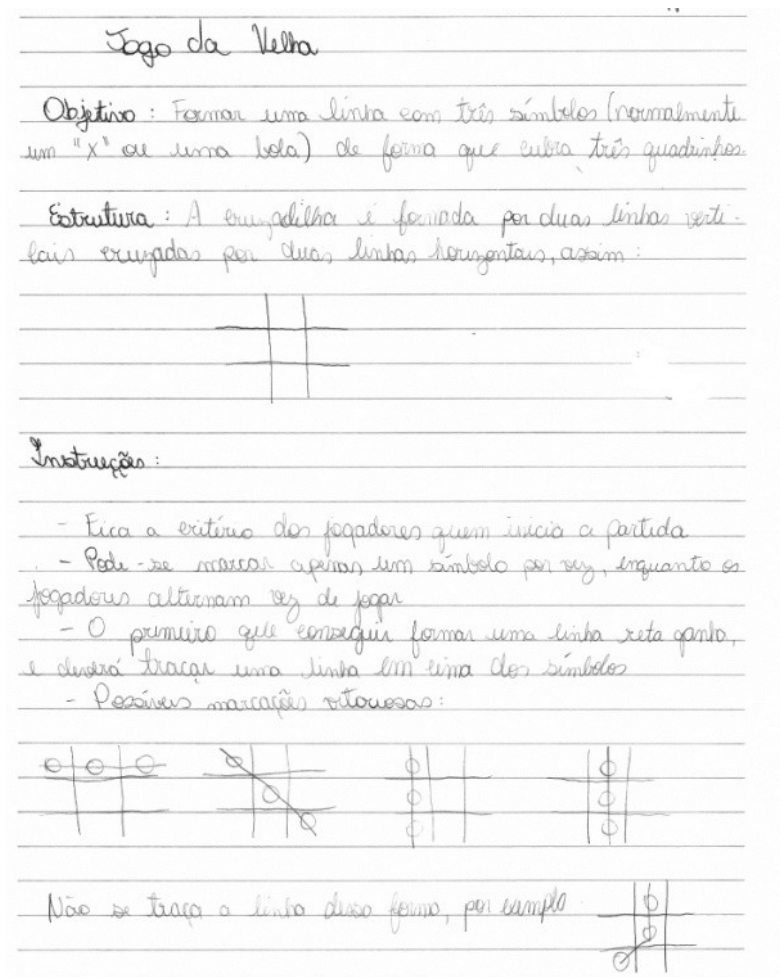 Jogo da Velha
Objetivo: Formar uma linha com três símbolos (normalmente
um "X" ou uma bola) de forma que cubra três quadrinhos.
Estrutura: A cruzadilha é formada por duas linhas verti-
cais cruzadas por duas linhas horizontais, assim:
Instruções:
- Fica a critério dos jogadores quem inicia a partida
- Pode-se marcar apenas um símbolo por vez, enquanto os
jogadores alternam vez de jogar
- O primeiro que conseguir formar uma linha reta ganha,
e deverá traçar uma linha em cima dos símbolos
- Possíveis marcações vitoriosas:
Não se traça a linha dessa forma, por exemplo